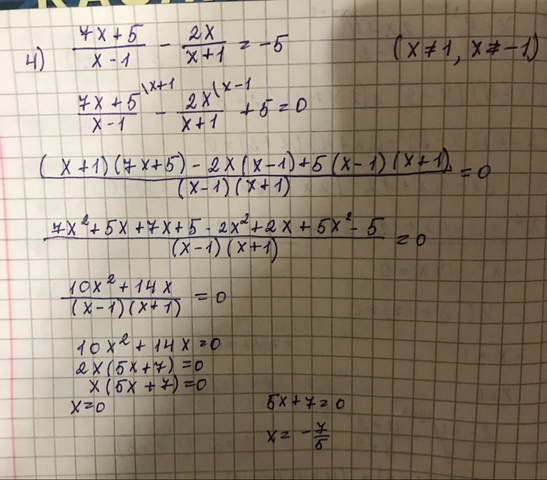 4) (7x+5)/(x-1) - 2x/(x+1) = -5 (x≠1, x≠-1)
(7x+5)/(x-1) \x+1 - 2x/(x+1) \x-1 + 5 = 0
((x+1)(7x+5) - 2x(x-1) + 5(x-1)(x+1))/((x-1)(x+1)) = 0
(7x²+5x+7x+5-2x²+2x+5x²-5)/((x-1)(x+1)) = 0
(10x²+14x)/((x-1)(x+1)) = 0
10x²+14x=0
2x(5x+7)=0
x(5x+7)=0
x=0 5x+7=0
x= -7/5